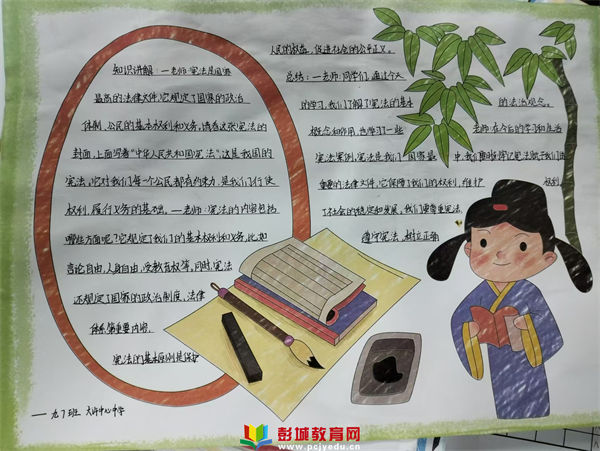 知识讲解：一老师：宪法是国家
最高的法律文件，它规定了国家的政治
体制、公民的基本权利和义务，请看这张宪法的
封面，上面写着"中华人民共和国宪法"，这是我国的
宪法，它对我们每一个公民都有约束力，是我们行使
权利，履行义务的基础。一老师：宪法的内容包括
哪些方面呢？它规定了我们的基本权利和义务，比如
言论自由，人身自由，受教育权等。同时，宪法
还规定了国家的政治制度、法律
体系等重要内容。
宪法的基本原则是保护
人民的权益，促进社会的公平正义。
总结：一老师：同学们，通过今天
的学习，我们了解了宪法的基本
概念和作用，也学习了一些
宪法案例，宪法是我们国家最
重要的法律文件，它保障了我们的权利，维护
了社会的稳定和发展，我们要尊重宪法，
遵守宪法，树立正确
的法治观念。
老师：在今后的学习和生活
中，我们
权利
七班
中心中学
彭城教育网
www.pcjyedu.cn